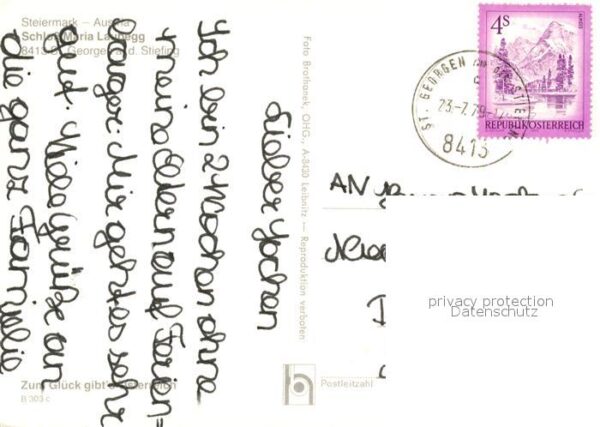 Steiermark – Austria
Schloß Maria Laubegg
8413 St. Georgen a. d. Stiefing
Lieber Jochen
Ich bin 2 Wochen ohne
meine Eltern auf Ferien=
lager. Mir geht es sehr
gut. Viele Grüße an
die ganze Familie
Zum Glück gibt's Österreich
B 303 c
Foto Brothanek, OHG., A-8430 Leibnitz — Reproduktion verboten
Postleitzahl
4S
ALMSEE
REPUBLIK ÖSTERREICH
ST. GEORGEN AN DER STIEFING
23.-7.79
8413
AN
privacy protection
Datenschutz